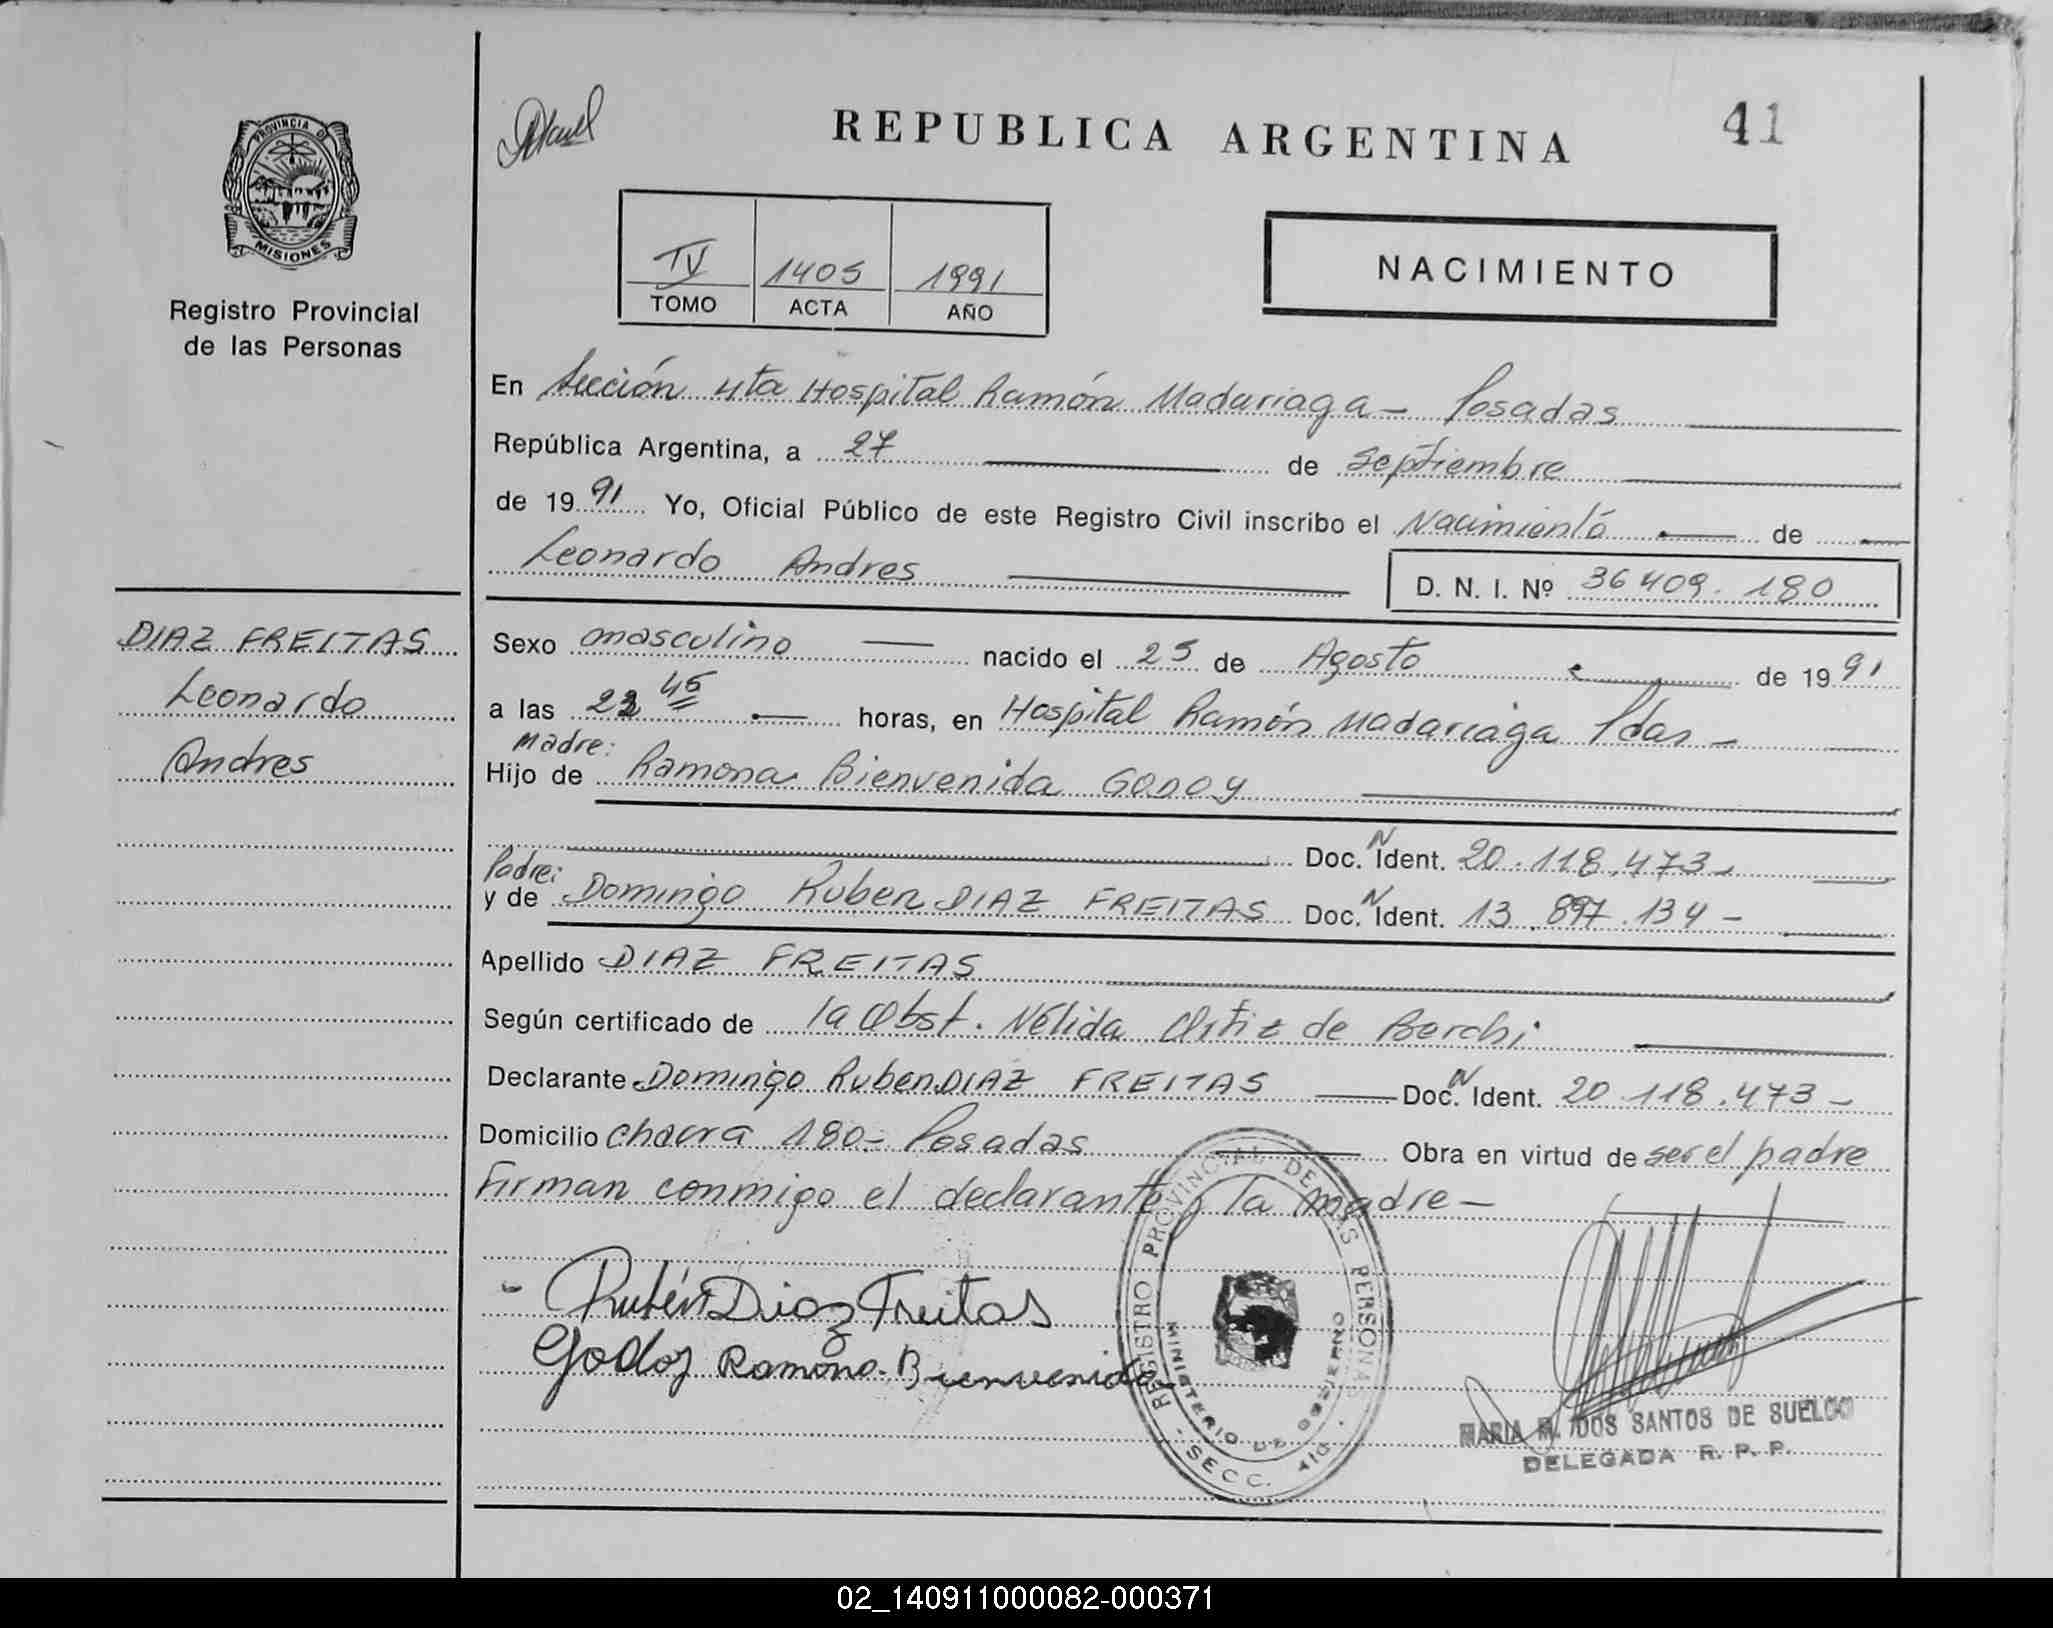 REPUBLICA ARGENTINA
41
PROVINCIA DE
MISIONES
Registro Provincial
de las Personas
IV 1405 1991
TOMO ACTA AÑO
NACIMIENTO
En Sección 4ta Hospital Ramón Madariaga - Posadas
República Argentina, a 27 de Septiembre
de 1991 Yo, Oficial Público de este Registro Civil inscribo el Nacimiento de
Leonardo Andres
D. N. I. Nº 36409.180
DIAZ FREITAS
Leonardo
Andres
Sexo masculino nacido el 25 de Agosto de 1991
a las 22 45 horas, en Hospital Ramón Madariaga Pdas -
Madre:
Hijo de Ramona Bienvenida GODOY
Doc. N Ident. 20.118.473-
Padre:
y de Domingo Ruben DIAZ FREITAS Doc. N Ident. 13.897.134-
Apellido DIAZ FREITAS
Según certificado de la Obst. Nélida Ortiz de Berchi
Declarante Domingo Ruben DIAZ FREITAS Doc. N Ident. 20.118.473-
Domicilio chacra 180- Posadas Obra en virtud de ser el padre
Firman conmigo el declarante y la madre-
Rubén Diaz Freitas
Godoy Ramona Bienvenida
REGISTRO PROVINCIAL DE LAS PERSONAS
MINISTERIO DE GOBIERNO
SECC. 4ta
MARIA M. DOS SANTOS DE SUELDO
DELEGADA R. P. P.
02_140911000082-000371